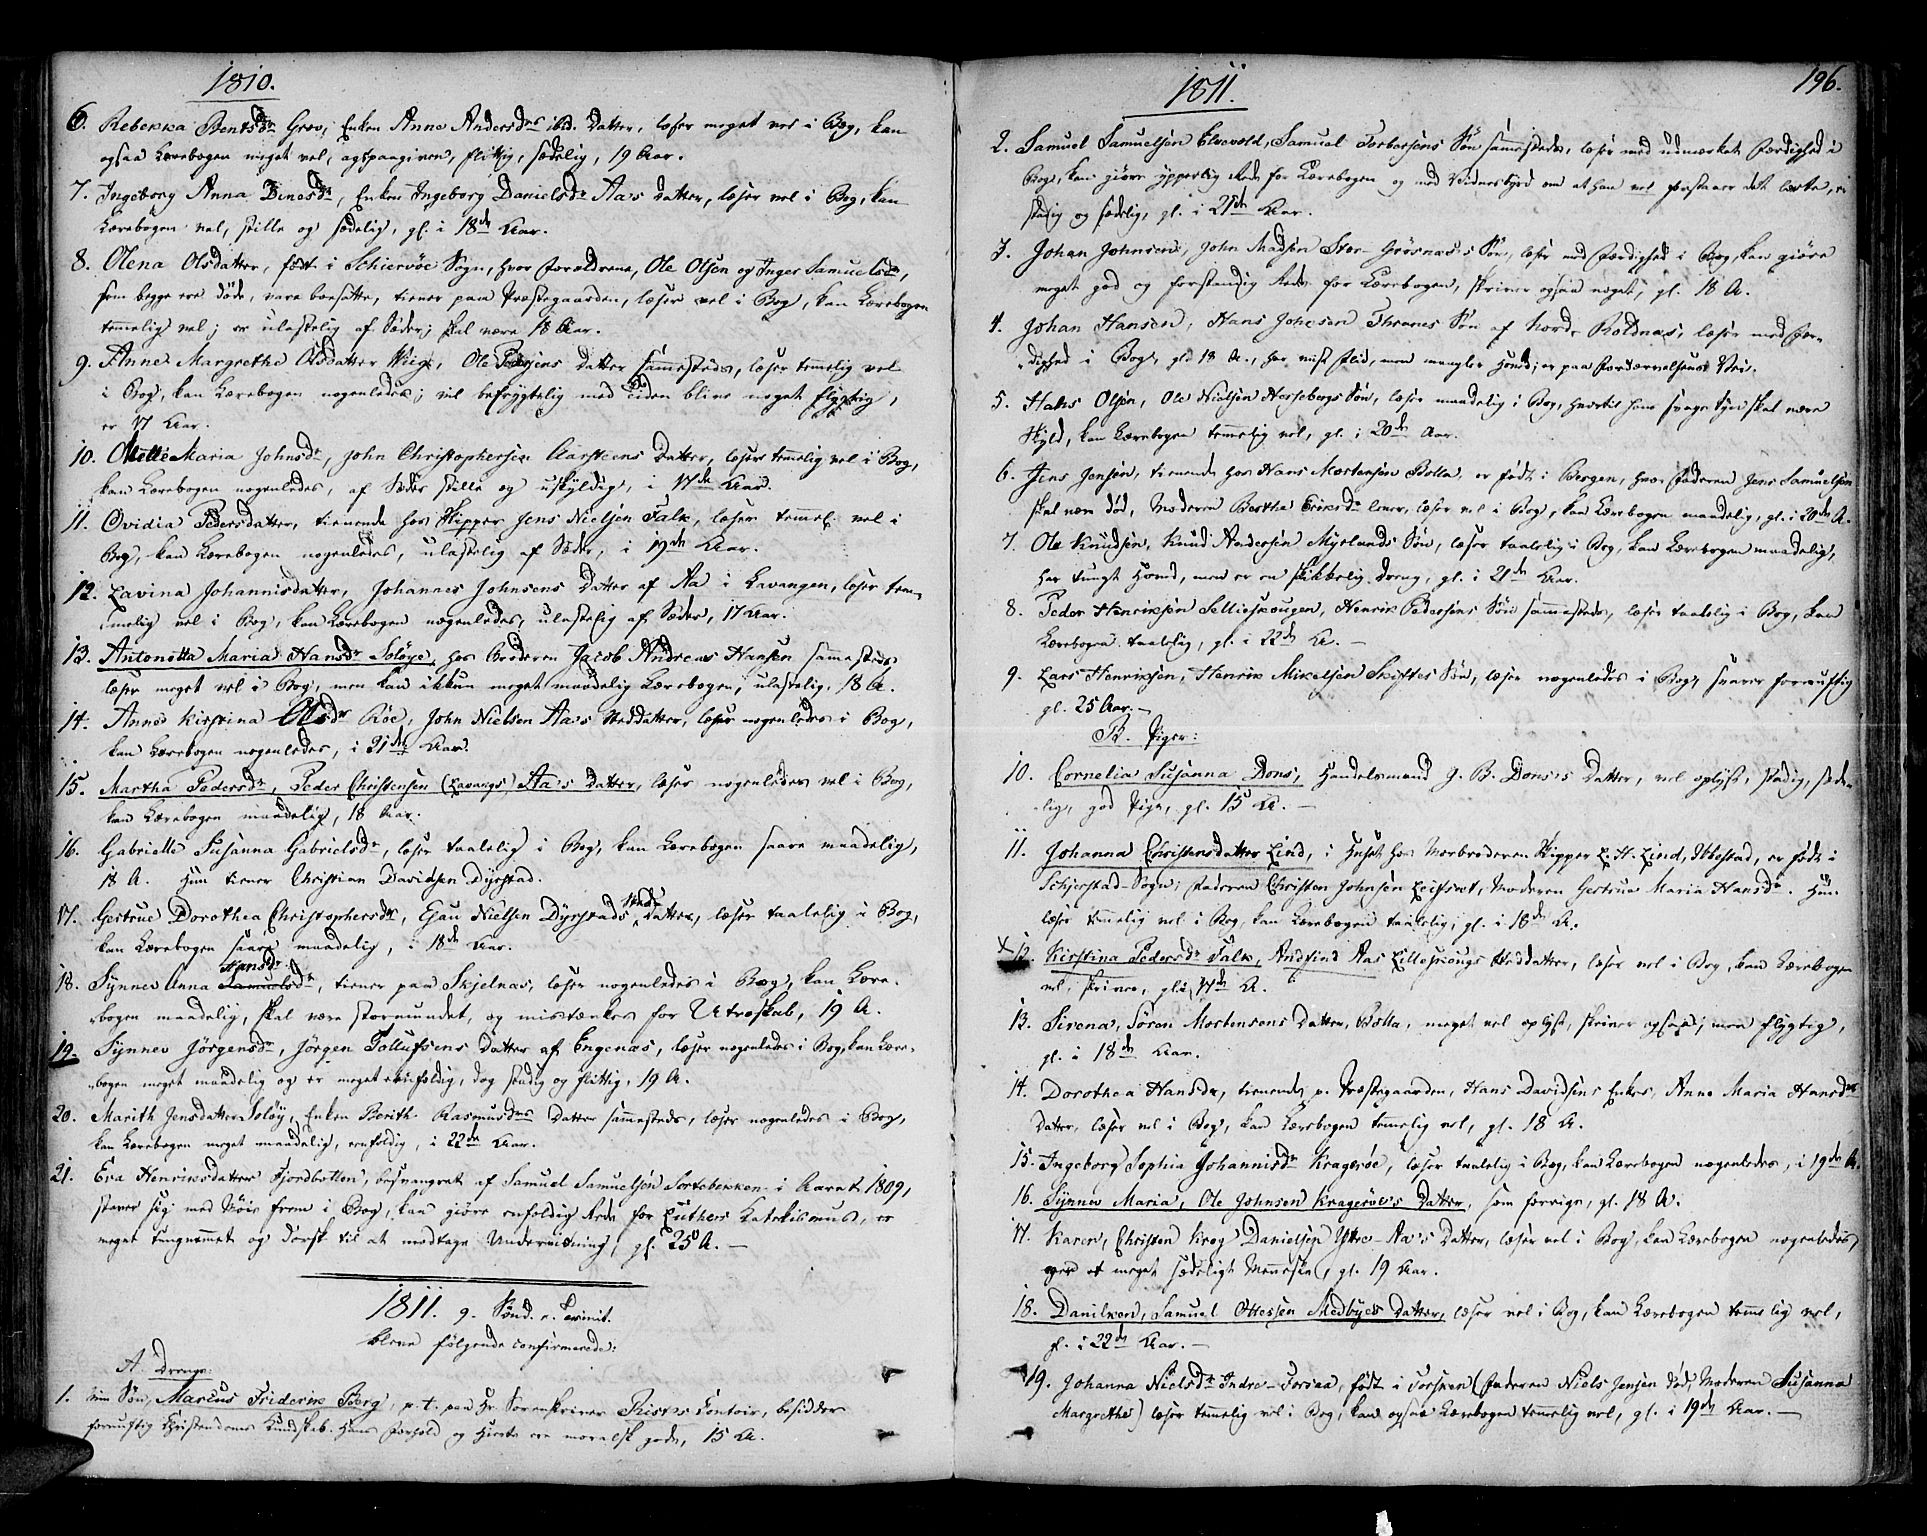 1810.
6. Rebekka Bentsdr Grov, Enken Anne Andersdrs ibid. Datter, læser meget vel i Bog, kan
ogsaa Lærebogen meget vel, agtpaagiven, flittig, sædelig, 19 Aar.
7. Ingeborg Anna Dinesdr, Enken Ingeborg Danielsdr Aa's Datter, læser vel i Bog, kan
Lærebogen vel, stille og sædelig, gl. i 18de Aar.
8. Olena Olsdatter, født i Schiervøe Sogn, hvor Forældrene, Ole Olsen og Inger Samuelsdr,
som begge ere døde, vare boesatte, tiener paa Præstegaarden, læser vel i Bog, kan Lærebogen
temmelig vel; er ulastelig af Sæder; skal være 18 Aar.
9. Anne Margrethe Olsdatter Wiig, Ole Pedersens Datter sammesteds, læser temmelig vel
i Bog, kan Lærebogen nogenledes; vil befrygtelig med Tiden blive noget flygtig,
er 17 Aar.
10. Olelle Maria Johnsdr, John Christophersen Aarsteens Datter, læser temmelig vel i Bog,
kan Lærebogen nogenledes, af Sæder stille og uskyldig, i 17de Aar.
11. Ovidia Pedersdatter, tienende hos Skipper Jens Nielsen Falk, læser temmel. vel i
Bog, kan Lærebogen nogenledes, ulastelig af Sæder, i 19de Aar.
12. Lavina Johannisdatter, Johannes Johnsens Datter af Aa i Lavangen, læser tem-
melig vel i Bog, kan Lærebogen nogenledes, ulastelig af Sæder, 17 Aar.
13. Antonetta Maria Hansdr Soløye, hos Broderen Jacob Andreas Hansen sammesteds
læser meget vel i Bog, men kan ikkun meget maadelig Lærebogen, ulastelig, 18 A.
14. Anne Kirstina Olsdr Röe, John Nielsen Aa's Steddatter, læser nogenledes i Bog,
kan Lærebogen nogenledes, i 21de Aar.
15. Martha Pedersdr, Peder Christensen (Lavangs) Aa's Datter, læser nogenledes vel i Bog,
kan Lærebogen maadelig, 18 Aar.
16. Gabrielle Susanna Gabrielsdr, læser taalelig i Bog, kan Lærebogen saare maadelig,
18 A. Hun tiener Christian Davidsen Dyrstad.
17. Gertrue Dorothea Christophersdr, Esau Nielsen Dyrstads Sted Datter, læser taalelig i Bog,
kan Lærebogen saare maadelig, i 18de Aar.
Hansdr
18. Synnev Anna Samuelsdr, tiener paa Skjelnæs, læser nogenledes i Bog, kan Lære-
bogen maadelig, skal være stormundet, og mistænkes for Utroskab, 19 A.
19. Synnev Jørgensdr, Jørgen Tollufsens Datter af Engenæs, læser nogenledes i Bog, kan Lære-
bogen meget maadelig og er meget eenfoldig, dog stadig og flittig, 19 A.
20. Marith Jensdatter Soløy, Enken Berith Rasmusdrs Datter sammesteds, læser nogenledes i Bog,
kan Lærebogen meget maadelig, eenfoldig, i 22de Aar.
21. Eva Henriksdatter Fjordbotten, besvangret af Samuel Samuelsen Sortebekken i Aaret 1809,
staver sig med Møie frem i Bog, kan giøre eenfoldig Rede for Luthers Katekismus, er
meget tungnemmet og dorsk til at modtage Underviisning, gl. 25 A. —
1811. 9. Sønd. e. Trinit.
bleve følgende confirmerede:
A. Drenge:
1. Min Søn, Marcus Friderik Borg, p. t. paa Hr Sorenskriver Rist's Contoir, besidder
fornuftig Christendoms Kundskab. Hans Forhold og Hierte ere moralsk gode, 15 A.
1811.
196.
2. Samuel Samuelsen Elvevold, Samuel Torbersens Søn sammesteds, læser med udmærket Færdighed i
Bog, kan giøre ypperlig Rede for Lærebogen og med Vidnesbyrd om at han vel forstaaer det lærte, er
stadig og sædelig, gl. i 21de Aar.
3. Johan Johnsen, John Madsen Stor-Grøsnæs's Søn, læser med Færdighed i Bog, kan giøre
meget god og forstandig Rede for Lærebogen, skriver ogsaa noget, gl. 18 A.
4. Johan Hansen, Hans Johnsen Thranes Søn af Nordr Roldnæs, læser med Fær-
dighed i Bog, gl. 18 A., har viist Flid, men mangler Hoved; er paa Fordærvelsens Vei.
5. Hans Olsen, Ole Nielsen Hessebergs Søn, læser maadelig i Bog, hvortil hans svage Syn skal være
Skyld, kan Lærebogen temmelig vel, gl. i 20de Aar.
6. Jens Jensen, tienende hos Hans Mortensen Bolla, er født i Bergen, hvor Faderen Jens Samuelsen
skal være død, Moderen Berthe Eriksdr lever, læser vel i Bog, kan Lærebogen maadelig, gl. i 20de A.
7. Ole Knudsen, Knud Andersen Myrlands Søn, læser taalelig i Bog, kan Lærebogen maadelig,
har tungt Hoved, men er en skikkelig Dreng, gl. i 21de Aar.
8. Peder Henriksen Sellieskougen, Henrik Pedersens Søn sammesteds, læser taalelig i Bog, kan
Lærebogen taalelig, gl. i 22de A. —
9. Lars Henriksen, Henrik Mikelsen Skiftes Søn, læser nogenledes i Bog, svarer fornuftig
gl. 25 Aar. —
B. Piger:
10. Cornelia Susanna Dons, Handelsmand J. B. Dons's Datter, vel oplyst, stadig, sæde-
lig, god Pige, gl. 15 A. —
11. Johanna Christensdatter Lind, i Huset hos Morbroderen Skipper L. H. Lind, Ibbestad, er født i
Schjerstad-Sogn; Faderen Christen Johnsen Leifset, Moderen Gertrue Maria Hansdr. Hun
læser temmelig vel i Bog, kan Lærebogen taalelig, gl. i 18de A.
x 12. Kirstina Pedersdr Falk, Andfind Aas Lilleskougs Steddatter, læser vel i Bog, kan Lærebogen
vel, skriver, gl. i 17de A.
13. Sirena, Søren Mortensens Datter, Bolla, meget vel oplyst, skriver ogsaa; men flygtig,
gl. i 18de Aar.
14. Dorothea Hansdr, tienende p. Præstegaarden, Hans Davidsens Enkes, Anne Maria Hansdrs
Datter, læser vel i Bog, kan Lærebogen temmelig vel, gl. 18 A.
15. Ingeborg Sophia Johannisdr Kragerøe, læser taalelig i Bog, kan Lærebogen nogenledes, i 19de A.
16. Synnev Maria, Ole Johnsen Kragerøe's Datter, som forrige, gl. 18 A.
17. Karen, Christen Krog Danielsen Yttre-Aa's Datter, læser vel i Bog, kan Lærebogen nogenledes,
et meget sædeligt Menneske, gl. 19 Aar.
18. Danilken, Samuel Ottesen Medbyes Datter, læser vel i Bog, kan Lærebogen temmelig vel,
gl. i 22de Aar. —
19. Johanna Nielsdr Indre-Forsaa, født i Torsken (Faderen Niels Jensen død, Moderen Susanna
Margrethe) læser temmelig vel i Bog, kan ogsaa Lærebogen temmelig vel, gl. i 19de Aar. —